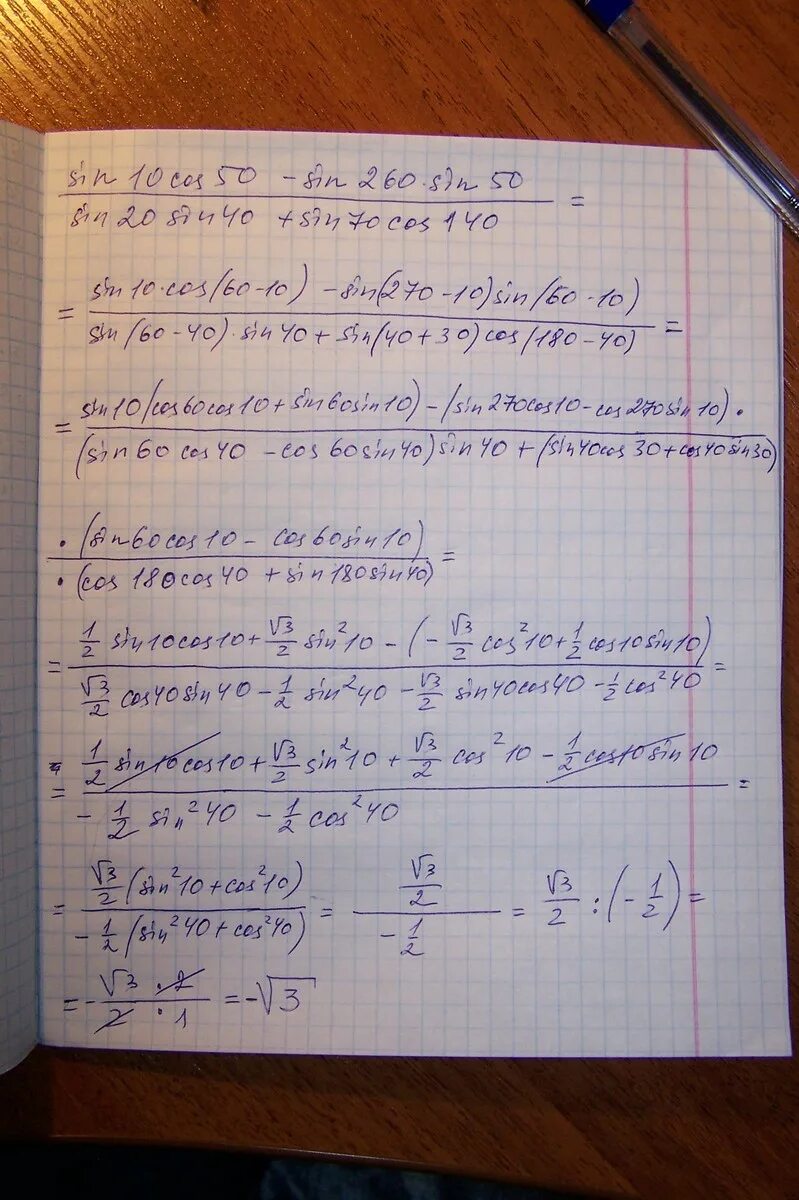 sin 10 cos 50 - sin 260 · sin 50
sin 20 sin 40 + sin 70 cos 140
=
sin 10 · cos(60-10) - sin(270-10) sin(60-10)
= =
sin(60-40) · sin 40 + sin(40+30) cos(180-40)
sin 10 (cos 60 cos 10 + sin 60 sin 10) - (sin 270 cos 10 - cos 270 sin 10) ·
=
(sin 60 cos 40 - cos 60 sin 40) sin 40 + (sin 40 cos 30 + cos 40 sin 30)
· (sin 60 cos 10 - cos 60 sin 10)
=
· (cos 180 cos 40 + sin 180 sin 40)
1/2 sin 10 cos 10 + √3/2 sin² 10 - (- √3/2 cos² 10 + 1/2 cos 10 sin 10)
= =
√3/2 cos 40 sin 40 - 1/2 sin² 40 - √3/2 sin 40 cos 40 - 1/2 cos² 40
1/2 sin 10 cos 10 + √3/2 sin² 10 + √3/2 cos² 10 - 1/2 cos 10 sin 10
= =
- 1/2 sin² 40 - 1/2 cos² 40
√3/2 (sin² 10 + cos² 10)
- 1/2 (sin² 40 + cos² 40)
= = √3/2 / - 1/2 = √3/2 : (- 1/2) =
= - √3 · 2 / 2 · 1 = - √3